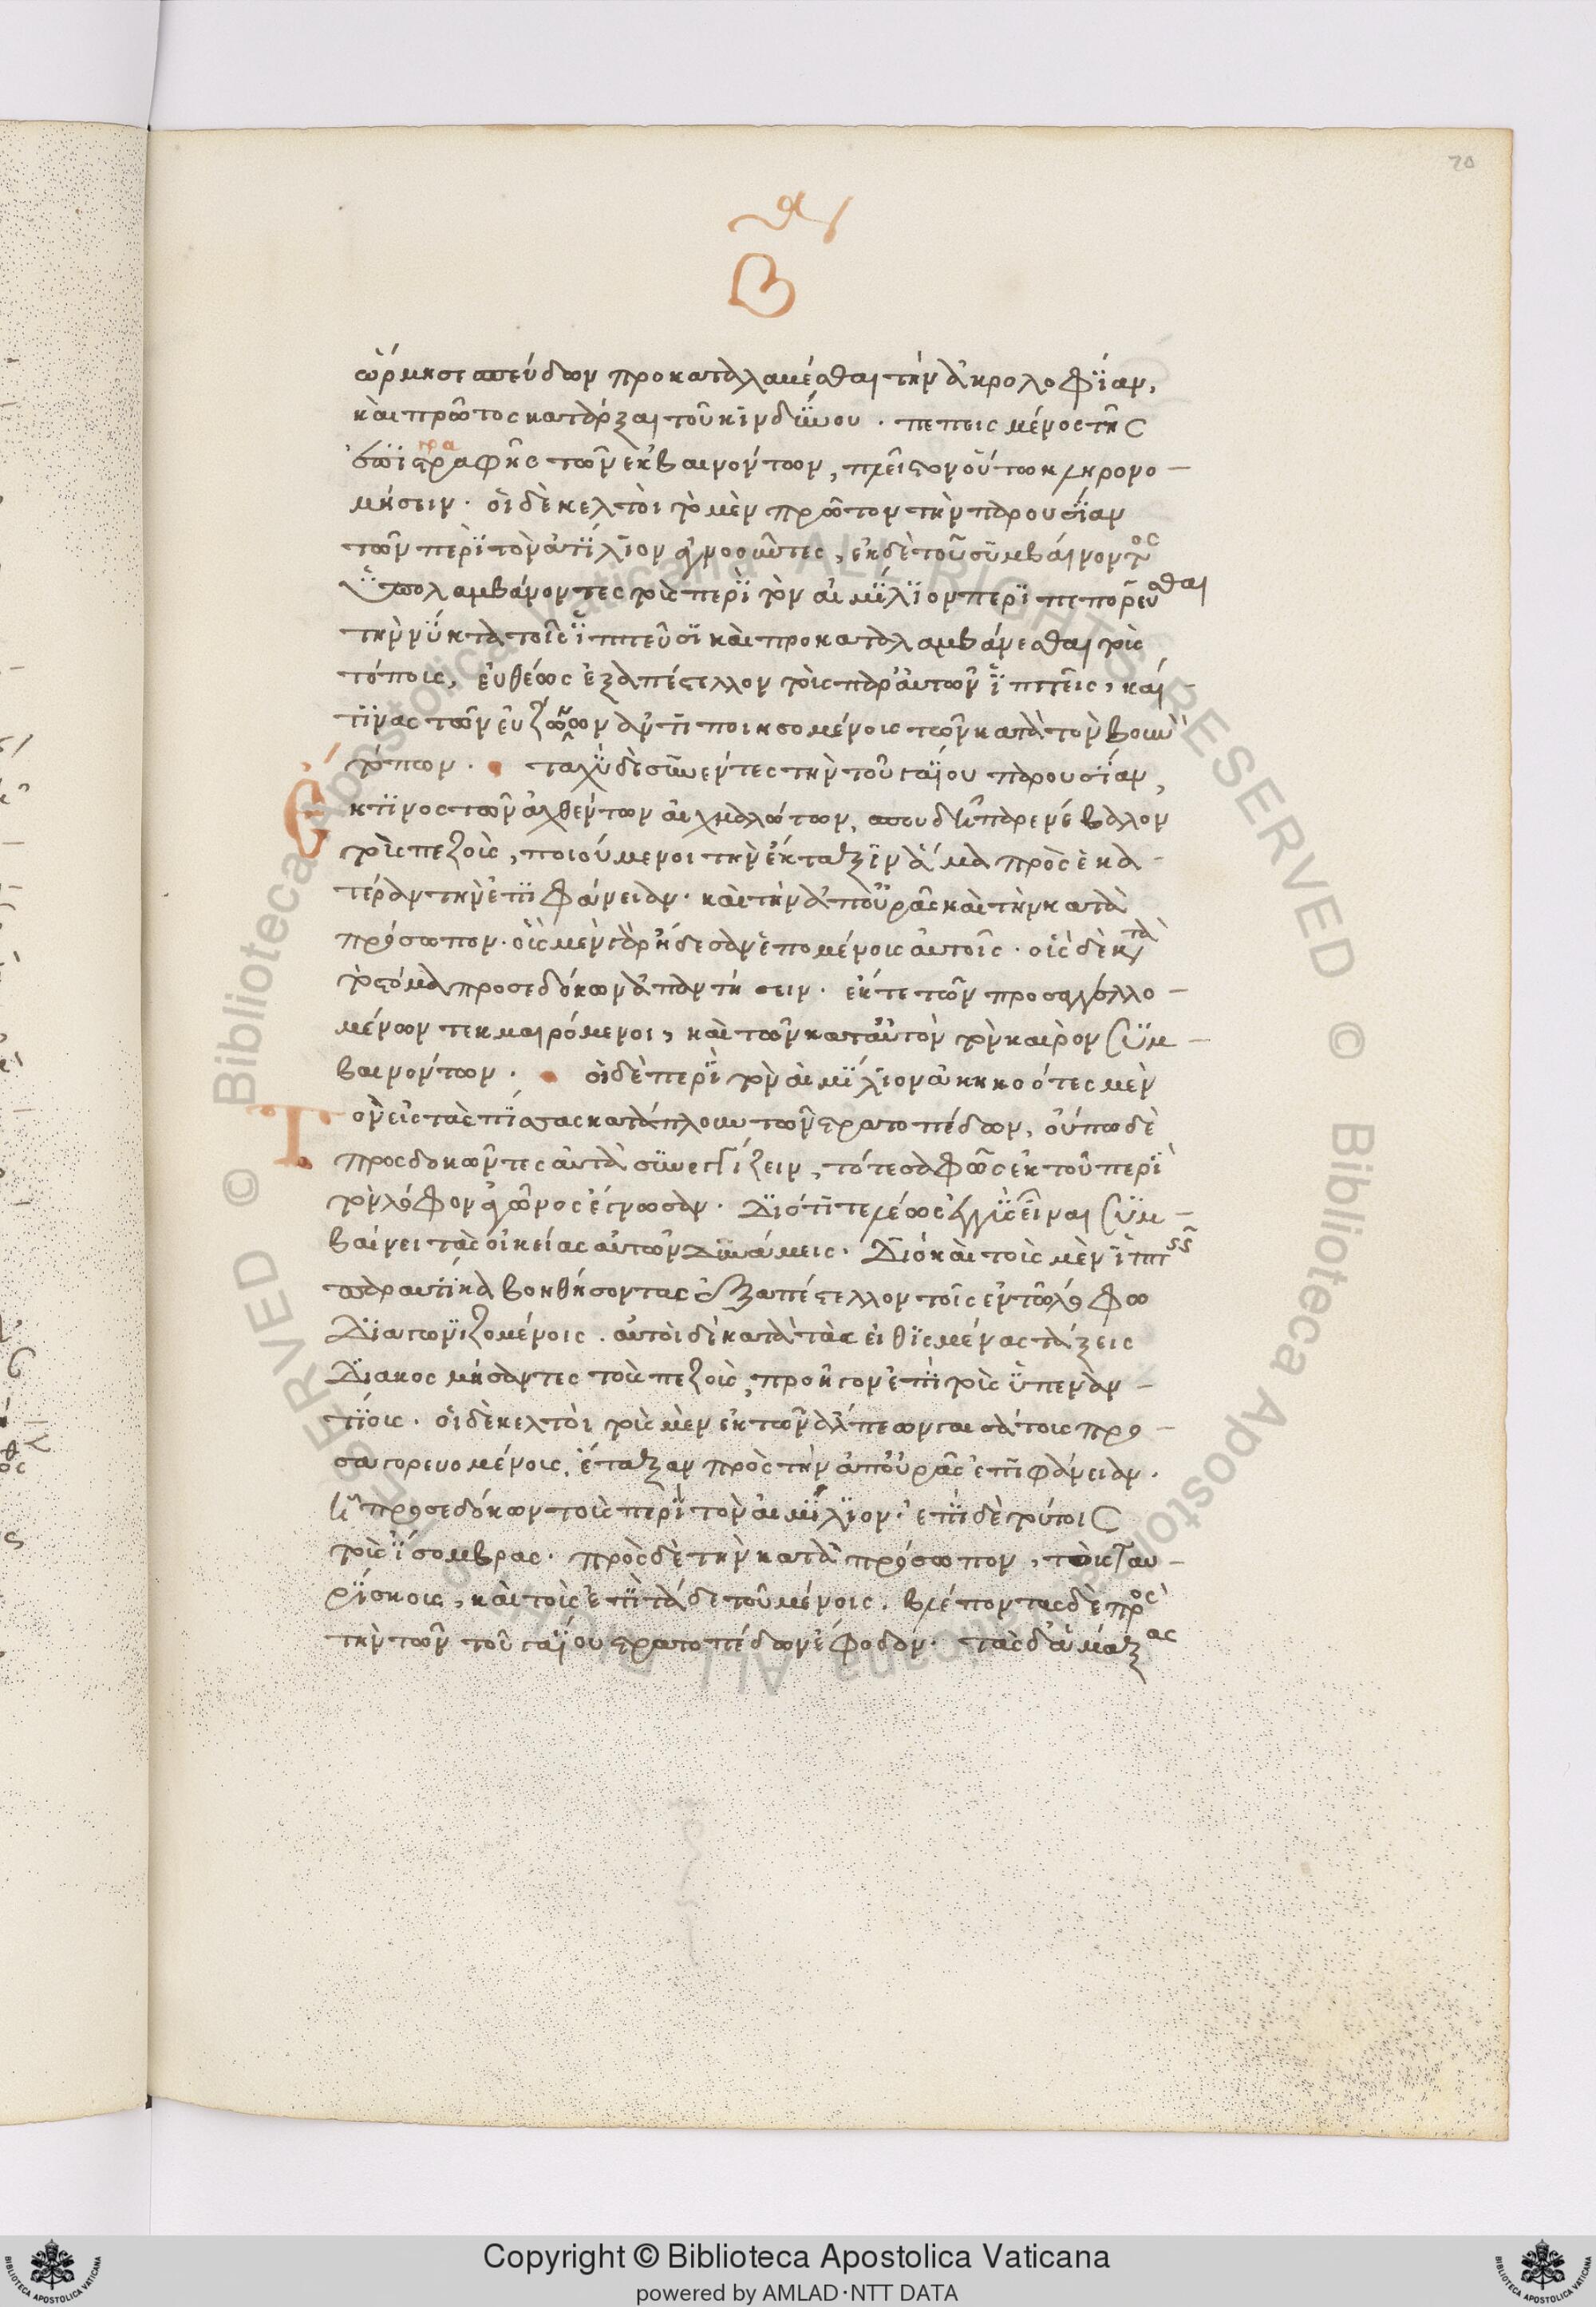 70
Β
ὥρμησε σπεύδων προκαταλαβέσθαι τὴν ἀκρολοφίαν,
καὶ πρῶτος κατάρξαι τοῦ κινδύνου. πεπεισμένος τῆς
ἐπιγραφῆς τῶν ἐκβαινόντων, πλεῖστον οὕτω κληρονο-
γρα
μήσειν. οἱ δὲ κελτοὶ τὸ μὲν πρῶτον τὴν παρουσίαν
τῶν περὶ τὸν ἀτίλιον ἀγνοοῦντες, ἐκ δὲ τοῦ συμβαίνοντος
ὑπολαμβάνοντες τοὺς περὶ τὸν αἰμίλιον περιπεπορεῦσθαι
τὴν νύκτα τοῖς ἱππεῦσι καὶ προκαταλαμβάνεσθαι τοὺς
τόπους, εὐθέως ἐξαπέστελλον τοὺς παρ' αὐτῶν ἱππεῖς, καί
τινας τῶν εὐζώνων ἀντιποιησομένους τῶν κατὰ τὸν βουνὸν
τόπων. ταχὺ δὲ συνέντες τὴν τοῦ γαΐου παρουσίαν,
ἔκ τινος τῶν ἀχθέντων αἰχμαλώτων, σπουδῇ παρενέβαλον
τοὺς πεζούς, ποιούμενοι τὴν ἔκταξιν ἅμα πρὸς ἑκα-
τέραν τὴν ἐπιφάνειαν. καὶ τὴν ἀπ' οὐρᾶς καὶ τὴν κατὰ
πρόσωπον. οὓς μὲν γὰρ ᾔδεσαν ἑπομένους αὐτοῖς. οὓς δὲ κατὰ
τὸ στόμα προσεδόκων ἀπαντήσειν. ἔκ τε τῶν προσαγγελλο-
μένων τεκμαιρόμενοι, καὶ τῶν κατ' αὐτὸν τὸν καιρὸν συμ-
βαινόντων. οἱ δὲ περὶ τὸν αἰμίλιον ἀκηκοότες μὲν
τὸν εἰς τὰς πίσας κατάπλουν τῶν στρατοπέδων, οὔπω δὲ
προσδοκῶντες αὐτὰ συνεγγίζειν, τότε σαφῶς ἐκ τοῦ περὶ
τὸν λόφον ἀγῶνος ἔγνωσαν. διότι τελέως ἐγγὺς εἶναι συμ-
βαίνει τὰς οἰκείας αὐτῶν δυνάμεις. διὸ καὶ τοὺς μὲν ἱππεῖς
παραυτίκα βοηθήσοντας ἐξαπέστελλον τοῖς ἐν τῶ λόφω
διαγωνιζομένοις. αὐτοὶ δὲ κατὰ τὰς εἰθισμένας τάξεις
διακοσμήσαντες τοὺς πεζούς, προῆγον ἐπὶ τοὺς ὑπεναν-
τίους. οἱ δὲ κελτοὶ τοὺς μὲν ἐκ τῶν ἄλπεων γαισάτους προ-
σαγορευομένους, ἔταξαν πρὸς τὴν ἀπ' οὐρᾶς ἐπιφάνειαν.
ᾗ προσεδόκων τοὺς περὶ τὸν αἰμίλιον. ἐπὶ δὲ τούτοις
τοὺς ἴσομβρας. πρὸς δὲ τὴν κατὰ πρόσωπον, τοὺς ταυ-
ρίσκους, καὶ τοὺς ἐπὶ τάδε τοῦ μένους. βλέποντας δὲ πρὸς
τὴν τῶν τοῦ γαΐου στρατοπέδων ἔφοδον. τὰς δ' ἁμάξας
Copyright © Biblioteca Apostolica Vaticana
powered by AMLAD·NTT DATA